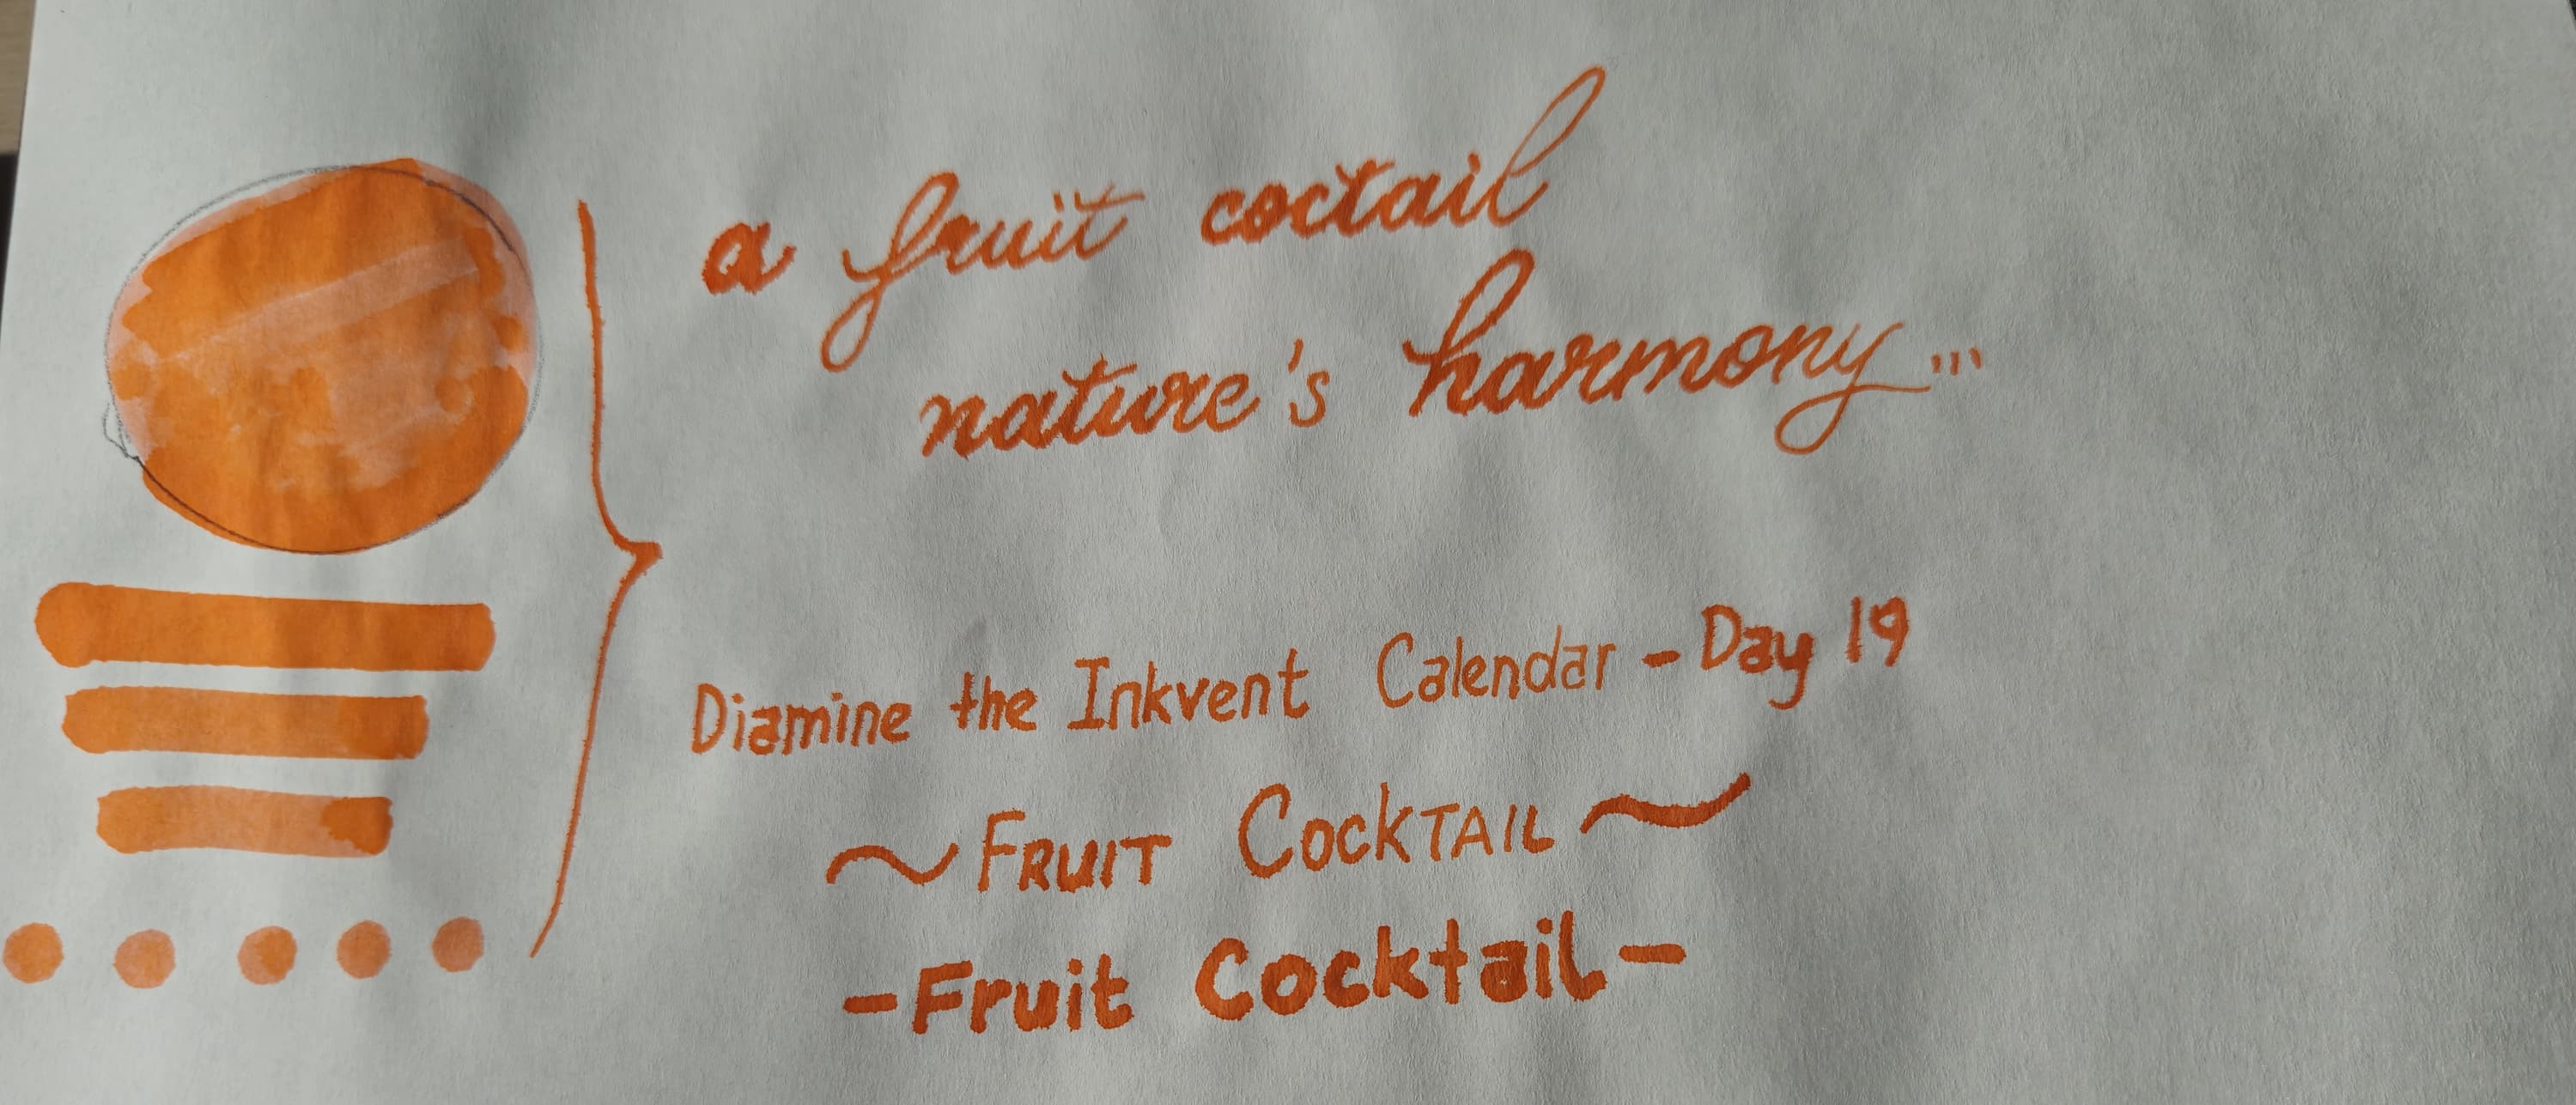 a fruit coctail
nature's harmony...
Diamine the Inkvent Calendar - Day 19
~ FRUIT COCKTAIL ~
- Fruit Cocktail -